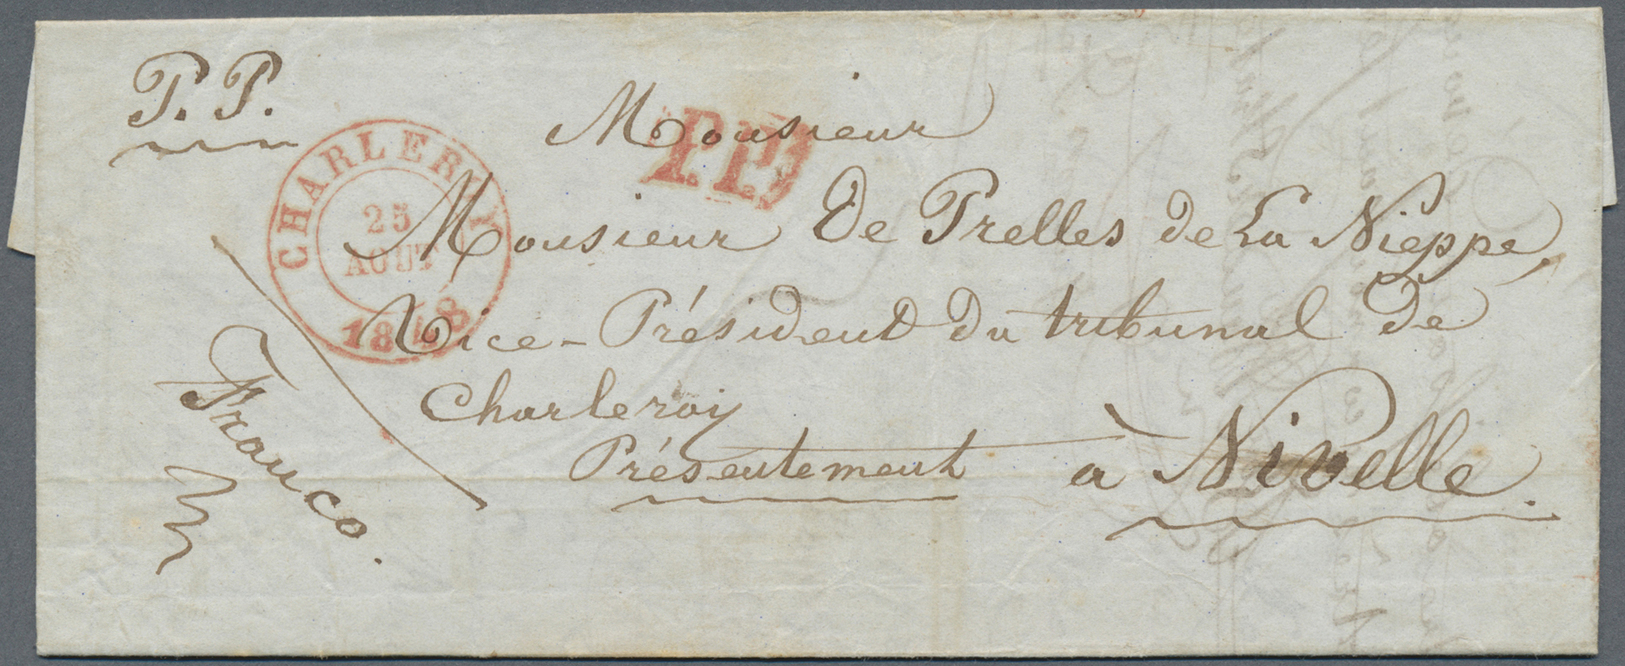 P. P.
CHARLEROY
25
AOUT
1848
P.P.
Monsieur
Monsieur De Prelles de La Nieppe,
Vice-Président du tribunal de
Charleroy
Présentement à Nivelle.
Franco.